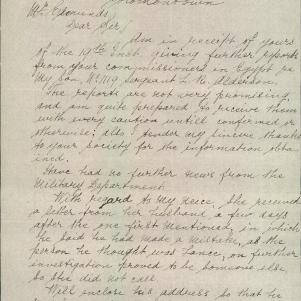 Mr Edmunds,
Dear Sir,
Am in receipt of yours
of the 19th Inst. giving further reports
from your commissioners in Egypt re
my son, No. 119 Sergeant L. R. Alderson.
The reports are not very promising
and am quite prepared to receive them
with every caution untill confirmed or
otherwise; also I tender my sincere thanks
to your society for the information obta
ined.
Have had no further news from the
Military Department.
With regard to my niece, she received
a letter from her husband a few days
after the one first mentioned, in which
he said he had made a mistake, as the
person he thought was Lance, on further
investigation proved to be someone else
so she did not call
Will inclose his address so that he